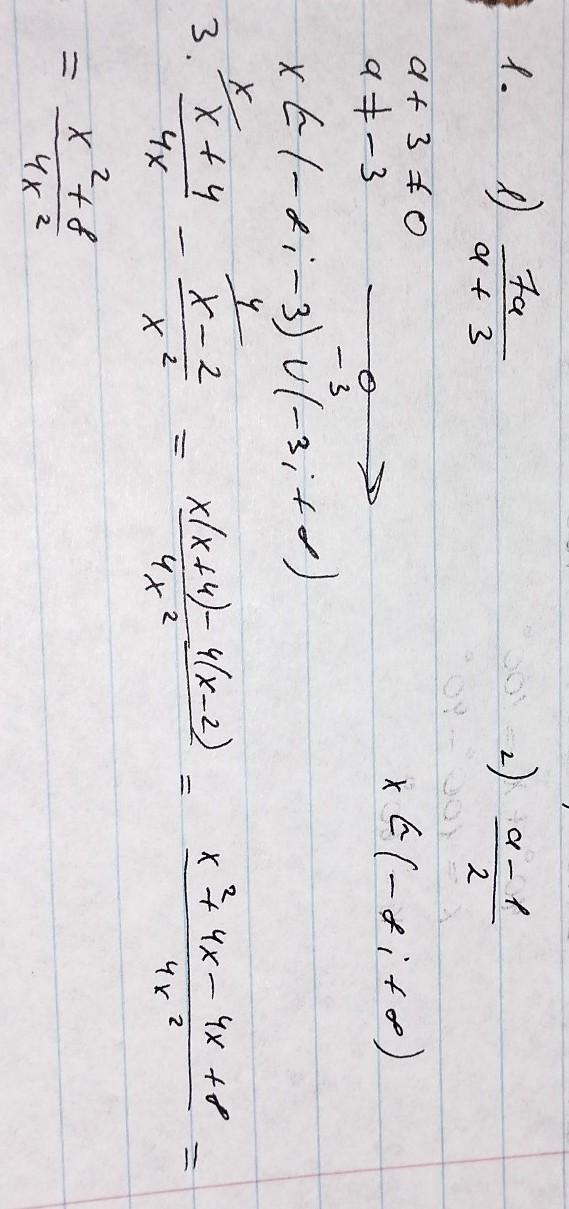 1. 1) 7a/(a + 3) 2) (a - 1)/2
a + 3 ≠ 0
a ≠ -3 -3 x ∈ (-∞; +∞)
x ∈ (-∞; -3) ∪ (-3; +∞)
3. x/ (x + 4)/(4x) - 4/ (x - 2)/(x²) = (x(x+4) - 4(x-2))/(4x²) = (x² + 4x - 4x + 8)/(4x²) =
= (x² + 8)/(4x²)